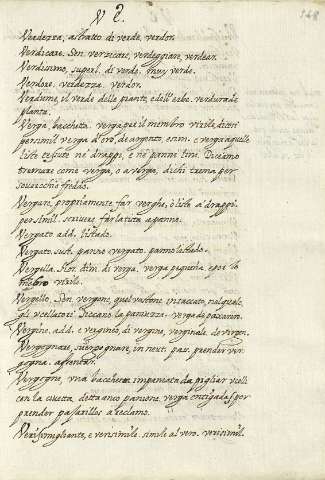 V 2.
Verdezza, astratto di verde, verdor.
Verdicare. Son. verzicare, verdeggiare, verdear.
Verdissimo, superl. di verde. muy verde.
Verdore, verdezza. verdor.
Verdume, il verde delle piante, e dell' erbe. verdura de
planta.
Verga, bacchetta. verga per il membro virile, dicesi
per simil. verga d'oro, de argento, e sim. e verga à quelle
liste tessute ne' drappi, e ne' panni lini. Diciamo
tremare come verga, o a verga, di chi trema per
soverchio freddo.
Vergare, propriamente far verghe, ò liste a' drappi.
per simil. scrivere, far la tuta a panno.
Vergato add. listado.
Vergato. sust. panno vergato. panno listado.
Vergella. Son. dim. di verga. verga pequeña
membro virile.
Vergello. Son. vergone, quel bastone, intaccato, nel quale,
gli uccellatori ficcano la paniuzza. verga de cazador.
Vergine. add. e vergineo, di vergine, verginale. de virgen.
Vergognare, svergognare, in neut. pass. prender ver
gogna. afrentar.
Vergone, una bacchetta impaniata da pigliar uccelli
con la civetta, detta anco panione. verga
prender paxarillos a reclamo.
Verisimigliante, e verisimile. simile al vero. verisimil.